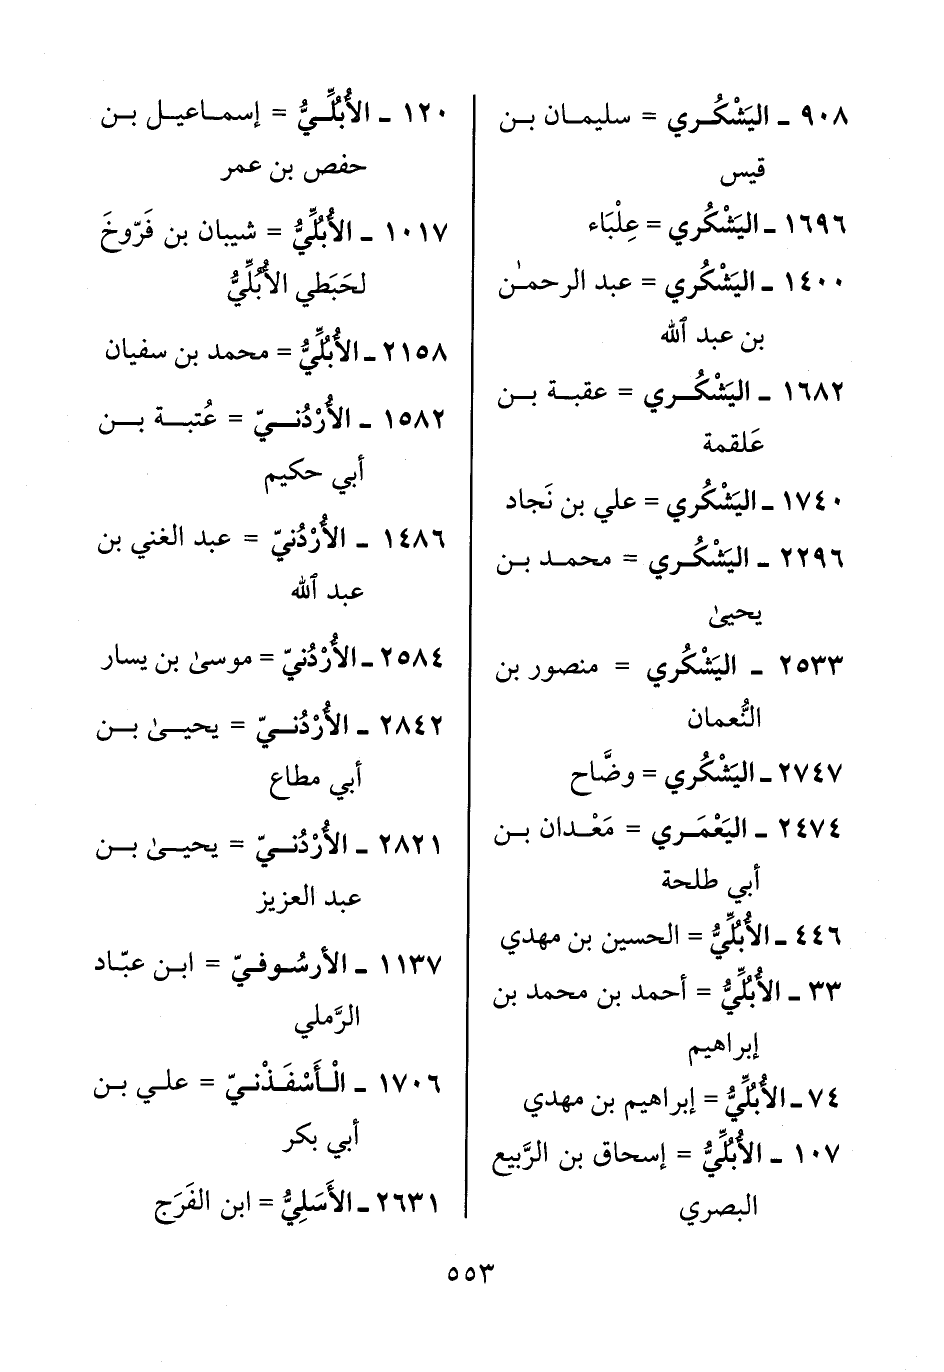 ٩٠٨ ـ اليَشْكُـري = سليمـان بـن
قيس
١٦٩٦ ـ اليَشْكُري = عِلْبَاء
١٤٠٠ ـ اليَشْكُري = عبد الرحمـٰن
بن عبد ٱلله
١٦٨٢ ـ اليَشْكُـري = عقبـة بـن
عَلقمة
١٧٤٠ ـ اليَشْكُري = علي بن نَجاد
٢٢٩٦ ـ اليَشْكُـري = محمـد بـن
يحيىٰ
٢٥٣٣ ـ اليَشْكُري = منصور بن
النُّعمان
٢٧٤٧ ـ اليَشْكُري = وضَّاح
٢٤٧٤ ـ اليَعْمَـري = مَعْـدان بـن
أبي طلحة
٤٤٦ ـ الأُبُلِّيُّ = الحسين بن مهدي
٣٣ ـ الأُبُلِّيُّ = أحمد بن محمد بن
إبراهيم
٧٤ ـ الأُبُلِّيُّ = إبراهيم بن مهدي
١٠٧ ـ الأُبُلِّيُّ = إسحاق بن الرَّبيع
البصري
١٢٠ ـ الأُبُلِّـيُّ = إسمـاعيـل بـن
حفص بن عمر
١٠١٧ ـ الأُبُلِّيُّ = شيبان بن فَرّوخَ
لحَبَطي الأُبُلِّيُّ
٢١٥٨ ـ الأُبُلِّيُّ = محمد بن سفيان
١٥٨٢ ـ الأُرْدُنـيّ = عُتبـة بـن
أبي حكيم
١٤٨٦ ـ الأُرْدُنيّ = عبد الغني بن
عبد ٱلله
٢٥٨٤ ـ الأُرْدُنيّ = موسىٰ بن يسار
٢٨٤٢ ـ الأُرْدُنـيّ = يحيـىٰ بـن
أبي مطاع
٢٨٢١ ـ الأُرْدُنـيّ = يحيـىٰ بـن
عبد العزيز
١١٣٧ ـ الأرسُـوفـيّ = ابـن عبّـاد
الرَّملي
١٧٠٦ ـ الْـأَسْفَـذْنـيّ = علـي بـن
أبي بكر
٢٦٣١ ـ الأَسَلِيُّ = ابن الفَرَج
٥٥٣